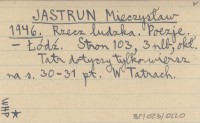 JASTRUN Mieczysław
1946. Rzecz ludzka. Poezje.
- Łódź. Stron 103, 3 nlb, okł.
Tatr dotyczy tylko wiersz
na s. 30-31 pt. W Tatrach.
WHP